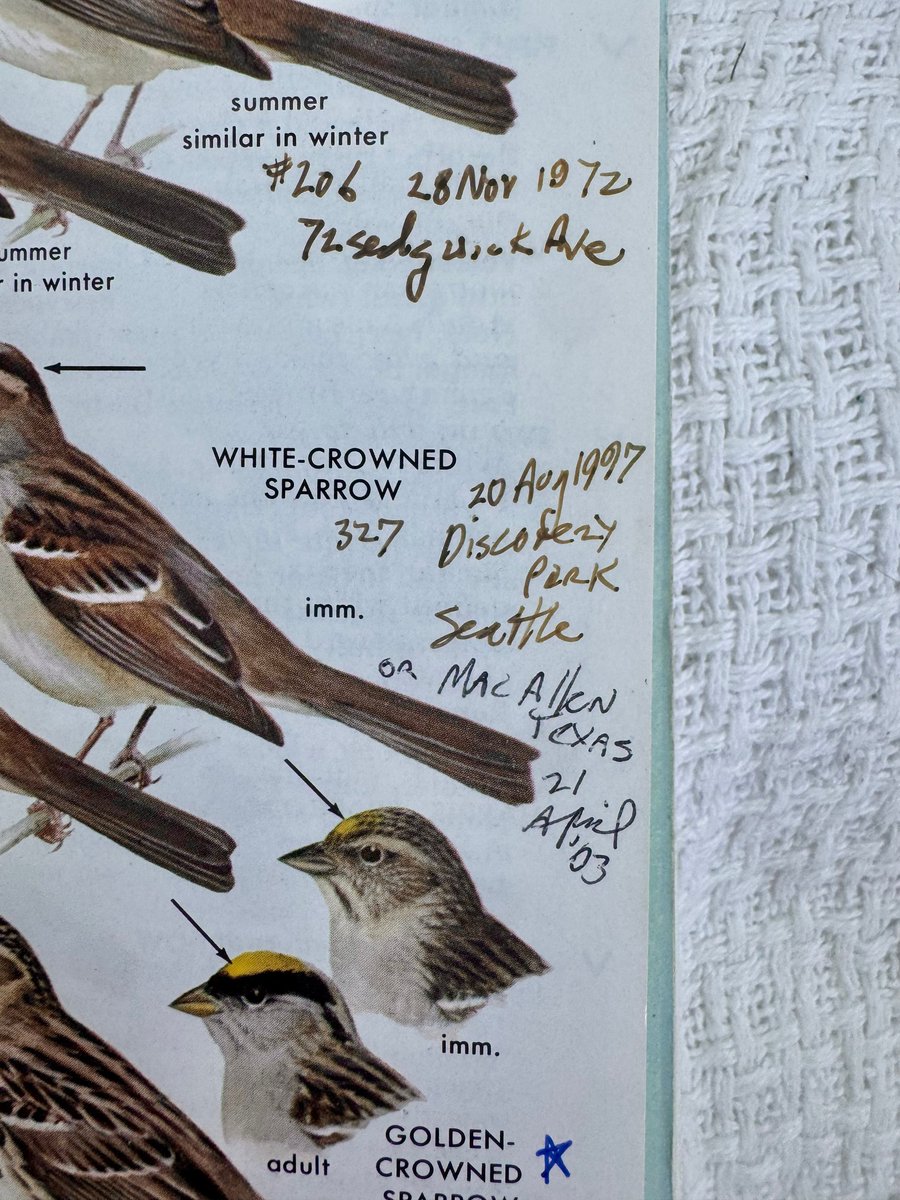 summer
similar in winter
#206 28 Nov 1972
72 sedgwick Ave
ummer
r in winter
WHITE-CROWNED
SPARROW
20 Aug 1997
327
Discovery
Park
imm.
Seattle
OR MacAllen
Texas
21
April
'03
imm.
adult
GOLDEN-
CROWNED
SPARROW